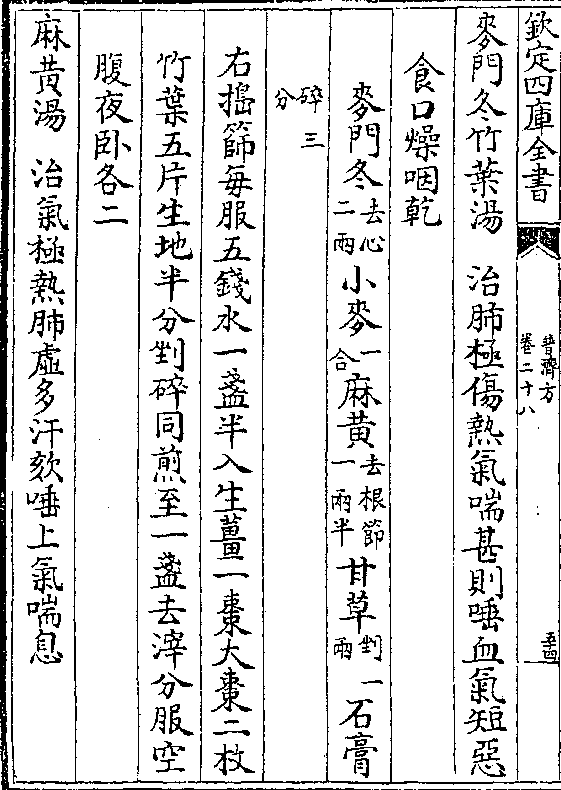 欽定四庫全書
普濟方
卷二十八
麥門冬竹葉湯　治肺極傷熱氣喘甚則唾血氣短惡
食口燥咽乾
麥門冬去心二兩小麥一合麻黄去根節一兩半甘草剉一兩石膏
碎三分
右搗篩每服五錢水一盞半入生薑一棗大棗二枚
竹葉五片生地半分剉碎同煎至一盞去滓分服空
腹夜卧各二
麻黄湯　治氣極熱肺虛多汗欬唾上氣喘息